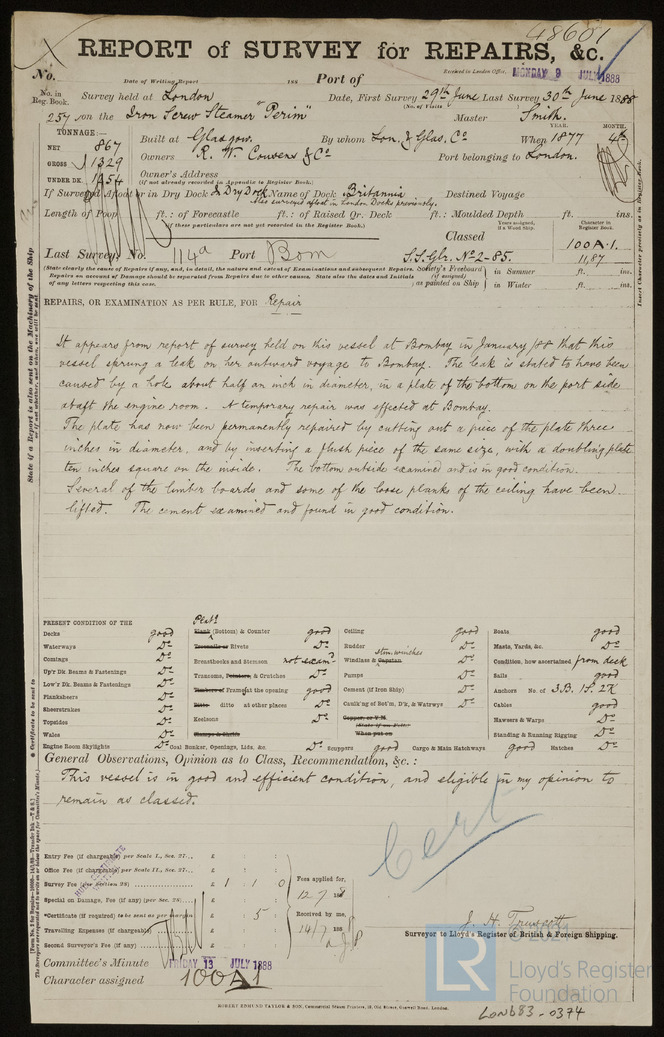 48601
REPORT of SURVEY for REPAIRS, &c.
No.
Date of Writing Report
188
Port of
Received at London Office, MONDAY 9 JULY 1888
No. in Reg. Book.
Survey held at London
Date, First Survey 29th June Last Survey 30th June 1888
(No. of Visits)
257 on the Iron Screw Steamer "Perim"
Master Smith.
TONNAGE:—
NET 867
GROSS 1329
UNDER DK. 1254
Built at Glasgow.
By whom Lon. & Glas. Co
When 1877
YEAR.
MONTH.
4th
Owners R. W. Couvers & Co
Port belonging to London.
Owner's Address
(if not already recorded in Appendix to Register Book.)
If Surveyed Afloat or in Dry Dock & Dry Dock Name of Dock Britannia
Destined Voyage
Also surveyed afloat in London Docks previously.
Length of Poop ft.: of Forecastle ft.: of Raised Qr. Deck ft.: Moulded Depth ft. ins.
(If these particulars are not yet recorded in the Register Book.)
Years assigned, if a Wood Ship.
Character in Register Book.
Classed
100 A.1.
11,87
Last Survey, No. 114a Port Bom
S.S.Glr. No 2-85.
(State clearly the cause of Repairs if any, and, in detail, the nature and extent of Examinations and subsequent Repairs.
Repairs on account of Damage should be separated from Repairs due to other causes. State also the dates and initials of any letters respecting this case.
Society's Freeboard (if assigned), as painted on Ship
in Summer ft. ins.
in Winter ft. ins.
REPAIRS, OR EXAMINATION AS PER RULE, FOR Repair
It appears from report of survey held on this vessel at Bombay in January/88 that this
vessel sprung a leak on her outward voyage to Bombay. The leak is stated to have been
caused by a hole about half an inch in diameter, in a plate of the bottom on the port side
abaft the engine room. A temporary repair was effected at Bombay.
The plate has now been permanently repaired by cutting out a piece of the plate three
inches in diameter, and by inserting a flush piece of the same size, with a doubling plate
ten inches square on the inside. The bottom outside examined and is in good condition.
Several of the limber boards and some of the loose planks of the ceiling have been
lifted. The cement examined and found in good condition.
PRESENT CONDITION OF THE
Decks good
Waterways Do
Comings Do
Up'r Dk Beams & Fastenings Do
Low'r Dk. Beams & Fastenings Do
Planksheers Do
Sheerstrakes Do
Topsides Do
Wales Do
Engine Room Skylights Do
Plats
Plank (Bottom) & Counter good
Treenails or Rivets Do
Breasthooks and Stemson not exam
Transoms, Pointers, & Crutches Do
Timbers of Frames at the opening good
Ditto ditto at other places Do
Keelsons Do
Coal Bunker, Openings, Lids, &c. Do
Ceiling good
Rudder Do
Stm. winches
Windlass & Capstan Do
Pumps Do
Cement (if Iron Ship) Do
Caulk'ng of Bot'm, D'k, & Watrwys Do
Copper, or Y.M.
(State if on Felt)
When put on
Scuppers good
Cargo & Main Hatchways good
Boats good
Masts, Yards, &c. Do
Condition, how ascertained from deck
Sails good
Anchors No. of 3B. 1S. 2K
Cables good
Hawsers & Warps Do
Standing & Running Rigging Do
Hatches Do
General Observations, Opinion as to Class, Recommendation, &c. :
This vessel is in good and efficient condition, and eligible in my opinion to
remain as classed.
Cert
Entry Fee (if chargeable) per Scale I., Sec. 27... £ : :
Office Fee (if chargeable) per Scale II., Sec. 27... £ : :
Survey Fee (per Section 28) £ 1 : 1 : 0
Special on Damage, Fee (if any) (per Sec. 28) £ : :
*Certificate (if required) to be sent as per margin : 5 :
Travelling Expenses (if chargeable) £ : :
Second Surveyor's Fee (if any) £ : :
Fees applied for,
12.7.188
Received by me,
14/7 188
J. H. Truscott
Surveyor to Lloyd's Register of British & Foreign Shipping.
Committee's Minute FRIDAY 13 JULY 1888
Character assigned 100 A 1
ROBERT EDMUND TAYLOR & SON, Commercial Steam Printers, 19, Old Street, Goswell Road, London.
State if a Report is also sent on the Machinery of the Ship
or if not whether, and when, one will be sent
* Certificate to be sent to
Insert Character precisely as in Register Book.
LR
© 2021
Lloyd's Register
Foundation
LON683-0374